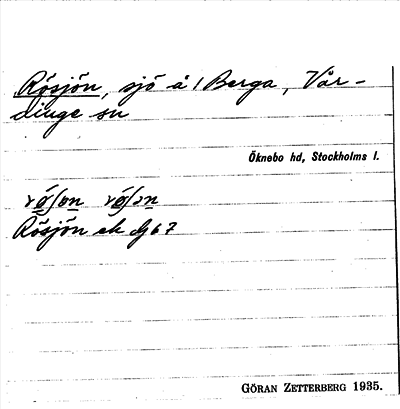 Rösjön, sjö å 1 Berga, Vår-
dinge sn
Öknebo hd, Stockholms l.
Rösjön ek
GÖRAN ZETTERBERG 1935.